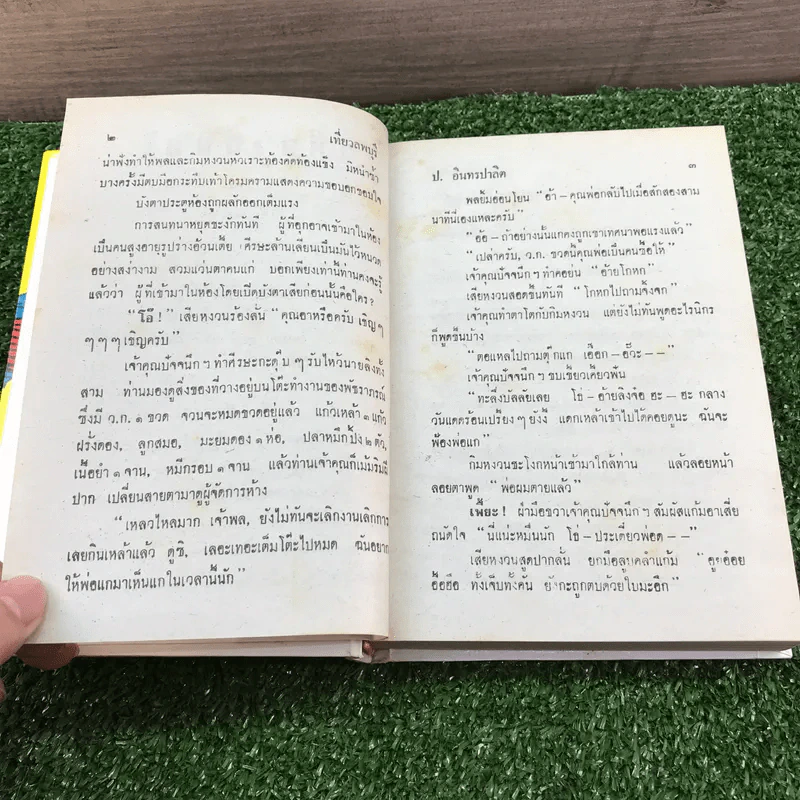 ๒ เที่ยวลพบุรี
น่าฟังทำให้พลและกิมหงวนหัวเราะท้องคัดท้องแข็ง มิหนำซ้ำ
บางครั้งมีตบมือกระทืบเท้าโครมครามแสดงความชอบอกชอบใจ
บังตาประตูห้องถูกผลักออกเต็มแรง
การสนทนาหยุดชะงักทันที ผู้ที่อุกอาจเข้ามาในห้อง
เป็นคนสูงอายุรูปร่างอ้วนเตี้ย ศีรษะล้านเลี่ยนเป็นมันไว้หนวด
อย่างสง่างาม สวมแว่นตาคนแก่ บอกเพียงเท่านี้ท่านคงจะรู้
แล้วว่า ผู้ที่เข้ามาในห้องโดยเปิดบังตาเสียก่อนนั้นคือใคร?
“โอ๊! ” เสี่ยหงวนร้องลั่น “คุณอาหรือครับ เชิญๆ
ๆๆๆ เชิญครับ”
เจ้าคุณปัจจนึกฯ ทำศีรษะกะดุ๊บๆ รับไหว้นายลิงทั้ง
สาม ท่านมองดูสิ่งของที่วางอยู่บนโต๊ะทำงานของพัชราภรณ์
ซึ่งมี ว.ก. ๑ ขวด จวนจะหมดขวดอยู่แล้ว แก้วเหล้า ๓ แก้ว
ฝรั่งดอง, ลูกสมอ, มะยมดอง ๑ ห่อ, ปลาหมึกปิ้ง ๒ ตัว,
เนื้อยำ ๑ จาน, หมี่กรอบ ๑ จาน แล้วท่านเจ้าคุณก็เม้มริมฝี
ปาก เปลี่ยนสายตามาดูผู้จัดการห้าง
“เหลวไหลมาก เจ้าพล, ยังไม่ทันจะเลิกงานเลิกการ
เลยกินเหล้าแล้ว ดูซิ, เลอะเทอะเต็มโต๊ะไปหมด ฉันอยาก
ให้พ่อแกมาเห็นแกในเวลานี้นัก”
ป. อินทรปาลิต ๓
พลยิ้มอ่อนโยน “อ้า – คุณพ่อกลับไปเมื่อสักสองสาม
นาทีนี่เองแหละครับ”
“อ้อ – ถ้าอย่างนั้นแกคงถูกเขาเทศนาพอแรงแล้ว”
“เปล่าครับ, ว.ก. ขวดนี้คุณพ่อเป็นคนซื้อให้”
เจ้าคุณปัจจนึกฯ ทำคอย่น “อ้ายโกหก”
เสี่ยหงวนสอดขึ้นทันที “โกหกไปถามจิ้งจก”
เจ้าคุณทำตาโตกับกิมหงวน แต่ยังไม่ทันพูดอะไรนิกร
ก็พูดขึ้นบ้าง
“ตอแหลไปถามตุ๊กแก เอื๊อก – อ๊วะ – –”
เจ้าคุณปัจจนึกฯ ขบเขี้ยวเคี้ยวฟัน
“ทะลึ่งบัลลัยเลย โธ่ – อ้ายลิงจ๋อ ฮะ – ฮะ กลาง
วันแดดร้อนเปรี้ยงๆ ยังงี้ แดกเหล้าเข้าไปได้คอยดูนะ ฉันจะ
ฟ้องพ่อแก”
กิมหงวนชะโงกหน้าเข้ามาใกล้ท่าน แล้วลอยหน้า
ลอยตาพูด “พ่อผมตายแล้ว”
เพี้ยะ! ฝ่ามือขวาเจ้าคุณปัจจนึกฯ สัมผัสแก้มอาเสี่ย
ถนัดใจ “นี่แน่ะหมั่นนัก โธ่ – ประเดี๋ยวพ่อด – –”
เสี่ยหงวนสูดปากลั่น ยกมือลูบคลำแก้ม “อูยอ๋อย
อื้อฮือ ทั้งเจ็บทั้งคัน ยังกะถูกตบด้วยใบมะอึก”